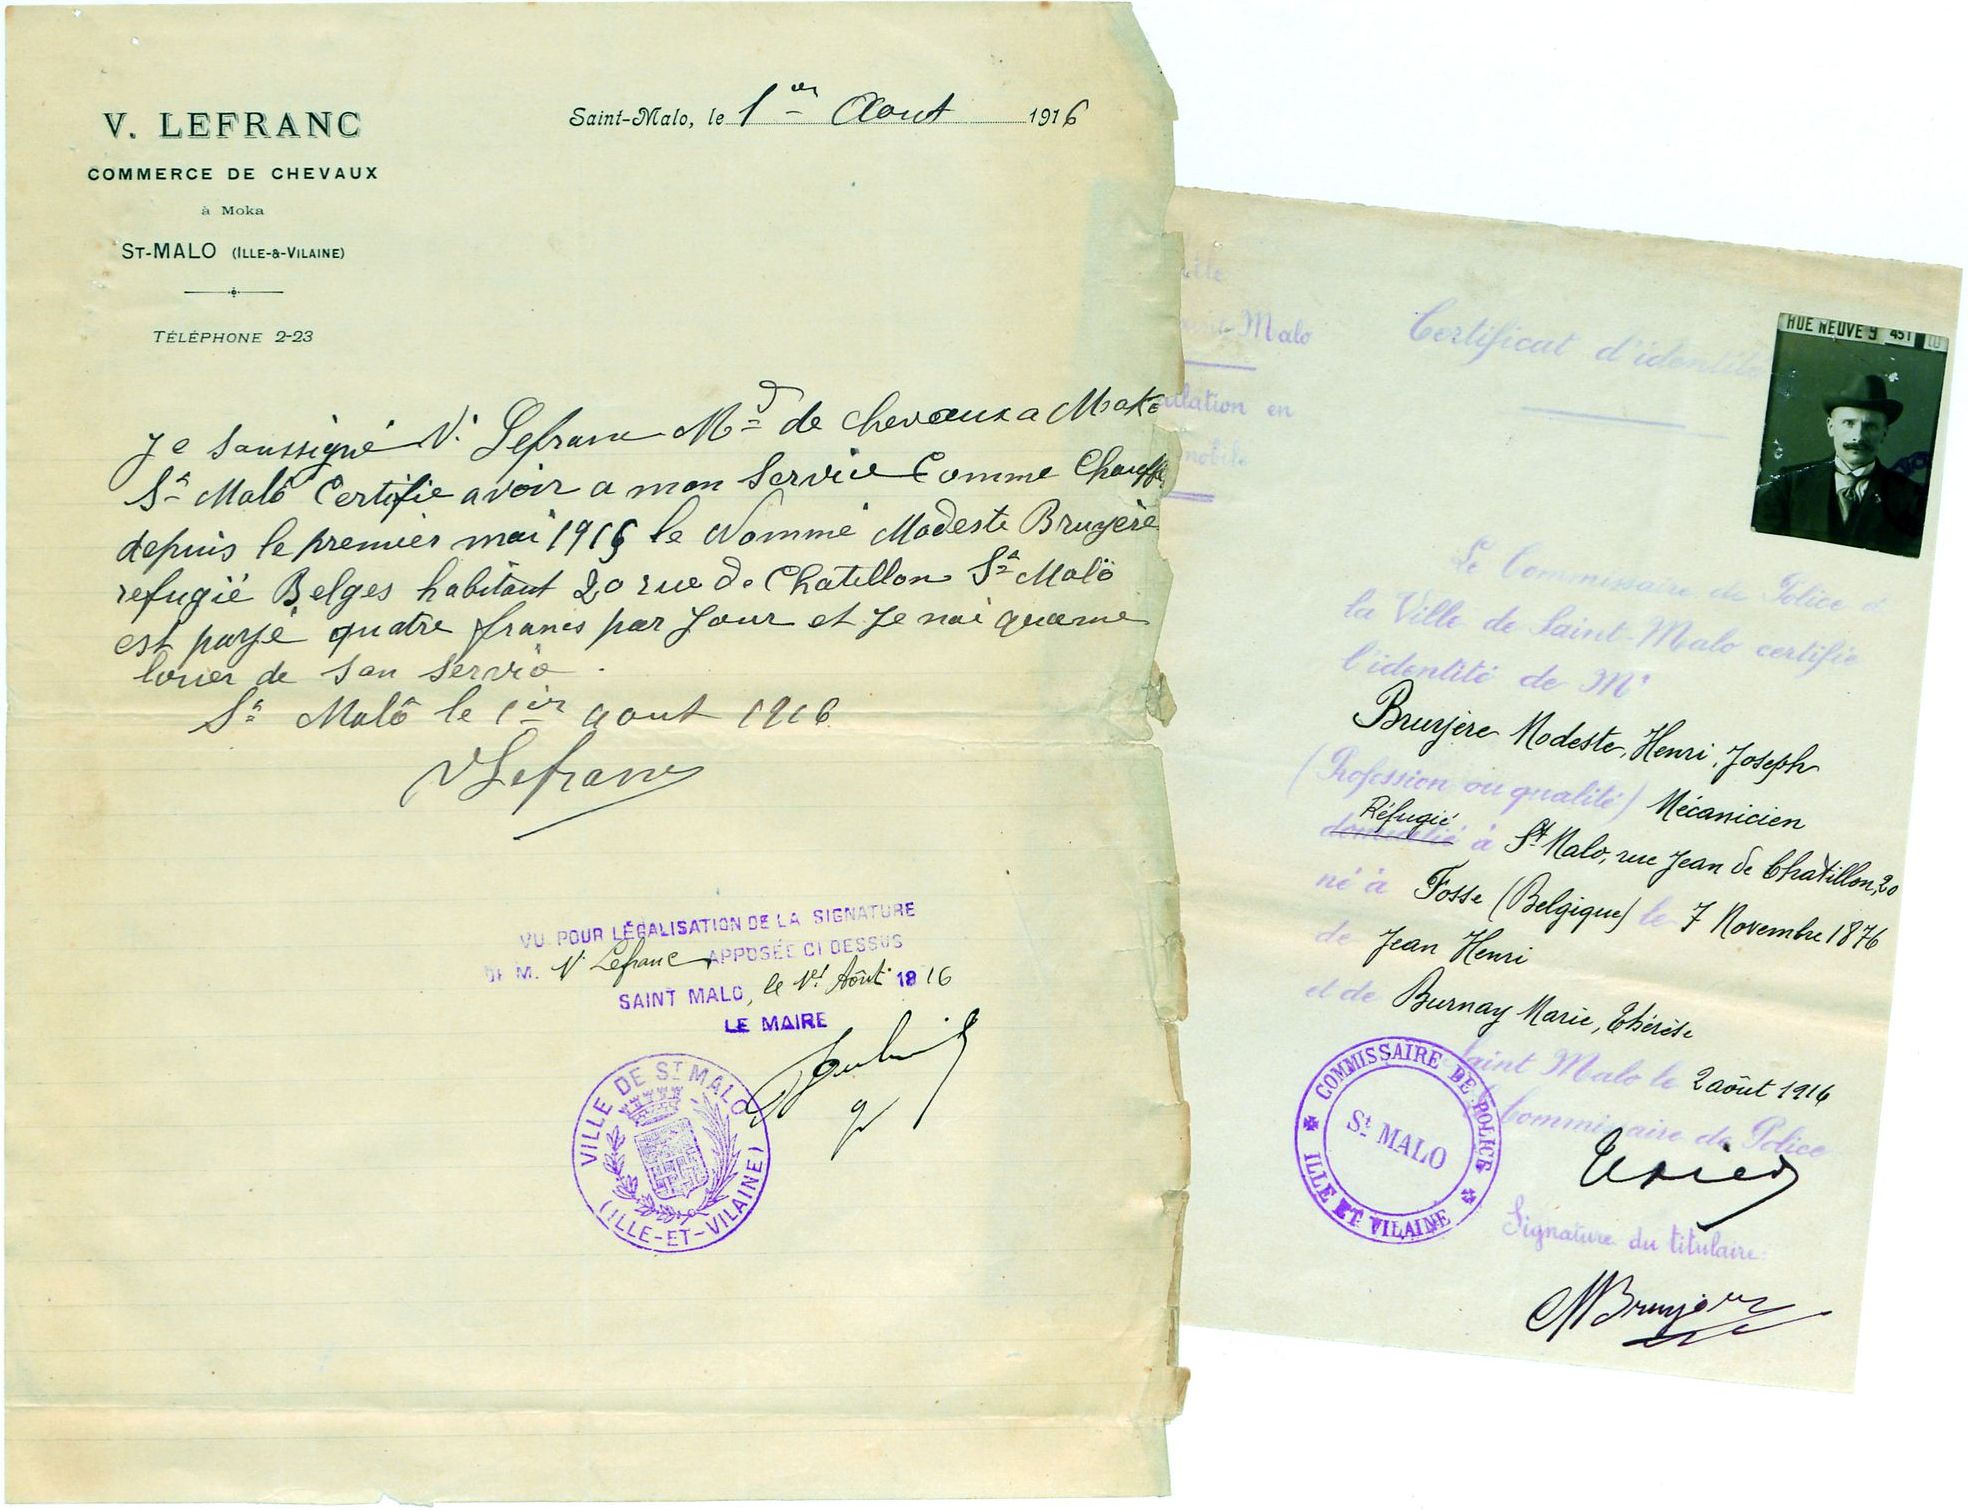 V. LEFRANC
COMMERCE DE CHEVAUX
à Moka
ST-MALO (ILLE-&-VILAINE)
TÉLÉPHONE 2-23
Saint-Malo, le 1er Aout 1916
Je soussigné V. Lefranc Md de chevaux a Moka
St Malo Certifie avoir a mon Service Comme
depuis le premier mai 1916 le Nommé Modeste Bruyère
refugié Belges habitant 20 rue de Chatillon St Malo
est payé quatre francs par Jour et je nai qua me
louer de son servio
St Malo le 1ier aout 1916
VLefranc
VU POUR LÉGALISATION DE LA SIGNATURE
DE M. V. Lefranc APPOSÉE CI DESSUS
SAINT MALO, le 1er Août 1916
LE MAIRE
VILLE DE ST MALO
(ILLE-ET-VILAINE)
Malo
ulation en
mobile
Certificat d'identité
RUE NEUVE 9 451
Le Commissaire de Police d
la Ville de Saint-Malo certifie
l'identité de Mr
Bruyère Modeste, Henri, Joseph
(Profession ou qualité) Mécanicien
Réfugié
domicilié à St Malo, rue Jean de Châtillon, 20
né à Fosse (Belgique) le 7 Novembre 1876
de Jean Henri
et de Burnay Marie, Thérèse
Saint Malo le 2 août 1916
Commissaire de Police
COMMISSAIRE DE POLICE
St MALO
ILLE ET VILAINE
Signature du titulaire
MBruyère